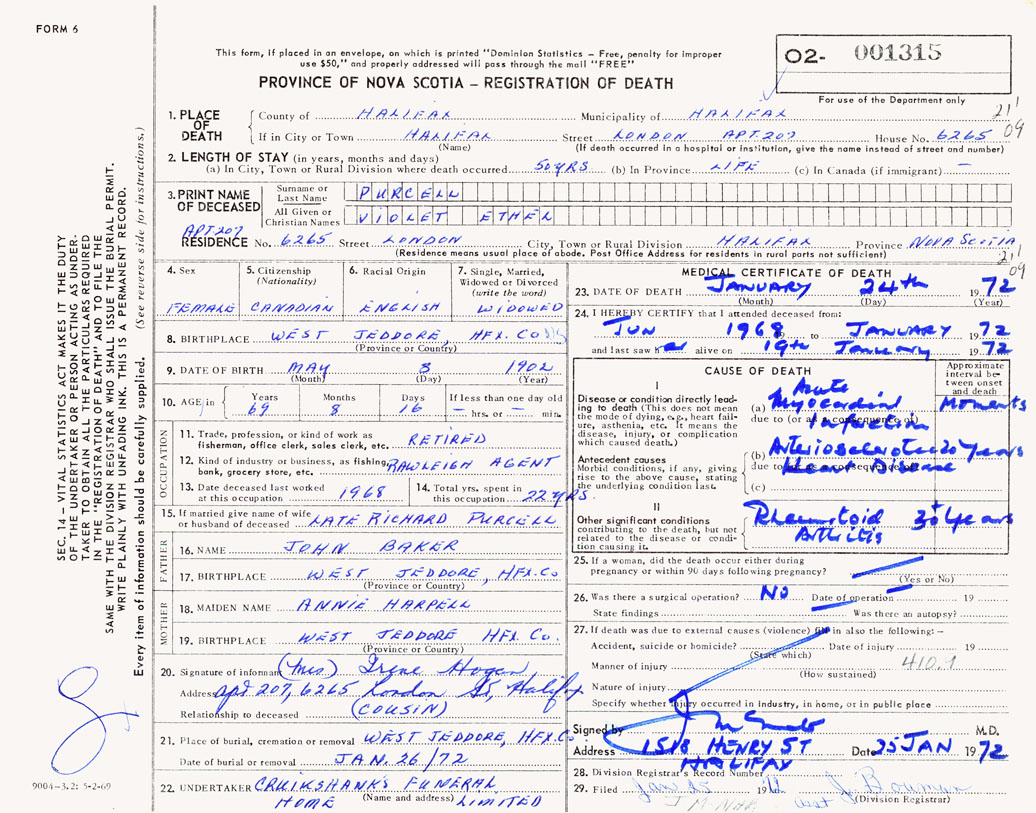 FORM 6
This form, if placed in an envelope, on which is printed "Dominion Statistics – Free, penalty for improper
use $50," and properly addressed will pass through the mail "FREE"
PROVINCE OF NOVA SCOTIA – REGISTRATION OF DEATH
O2- 001315
For use of the Department only
211
09
1. PLACE OF DEATH
County of HALIFAX Municipality of HALIFAX
If in City or Town HALIFAX Street LONDON APT 207 House No. 6265
(Name) (If death occurred in a hospital or institution, give the name instead of street and number)
2. LENGTH OF STAY (in years, months and days)
(a) In City, Town or Rural Division where death occurred 50 YRS (b) In Province LIFE (c) In Canada (if immigrant) –
3. PRINT NAME OF DECEASED
Surname or Last Name PURCELL
All Given or Christian Names VIOLET ETHEL
APT 207
RESIDENCE No. 6265 Street LONDON City, Town or Rural Division HALIFAX Province NOVA SCOTIA
(Residence means usual place of abode. Post Office Address for residents in rural parts not sufficient)
211
09
4. Sex
FEMALE
5. Citizenship
(Nationality)
CANADIAN
6. Racial Origin
ENGLISH
7. Single, Married,
Widowed or Divorced
(write the word)
WIDOWED
8. BIRTHPLACE WEST JEDDORE, HFX. CO
(Province or Country)
9. DATE OF BIRTH MAY 8 1902
(Month) (Day) (Year)
10. AGE in Years Months Days If less than one day old
69 8 16 – hrs. or – min.
OCCUPATION
11. Trade, profession, or kind of work as
fisherman, office clerk, sales clerk, etc. RETIRED
12. Kind of industry or business, as fishing,
bank, grocery store, etc. RAWLEIGH AGENT
13. Date deceased last worked
at this occupation 1968
14. Total yrs. spent in
this occupation 22 YRS.
15. If married give name of wife
or husband of deceased LATE RICHARD PURCELL
FATHER
16. NAME JOHN BAKER
17. BIRTHPLACE WEST JEDDORE, HFX. CO
(Province or Country)
MOTHER
18. MAIDEN NAME ANNIE HARPELL
19. BIRTHPLACE WEST JEDDORE HFX. CO.
(Province or Country)
20. Signature of informant (Mrs) Irene Hogan
Address apt 207, 6265 London St, Halifax
Relationship to deceased (COUSIN)
21. Place of burial, cremation or removal WEST JEDDORE, HFX. CO
Date of burial or removal JAN. 26/72
22. UNDERTAKER CRUIKSHANKS FUNERAL
HOME (Name and address) LIMITED
MEDICAL CERTIFICATE OF DEATH
23. DATE OF DEATH JANUARY 24th 1972
(Month) (Day) (Year)
24. I HEREBY CERTIFY that I attended deceased from:
JUN 1968 to JANUARY 1972
and last saw her alive on 19th January 1972
CAUSE OF DEATH
Approximate interval between onset and death
I
Disease or condition directly leading to death (This does not mean the mode of dying, e.g., heart failure, asthenia, etc. It means the disease, injury, or complication which caused death.)
(a) Acute Myocardial Infarction Moments
due to (or as a consequence of)
Antecedent causes
Morbid conditions, if any, giving rise to the above cause, stating the underlying condition last.
(b) Arteriosclerotic Heart Disease 20 years
due to (or as a consequence of)
(c)
II
Other significant conditions
contributing to the death, but not related to the disease or condition causing it.
Rheumatoid Arthritis 30+ years
25. If a woman, did the death occur either during
pregnancy or within 90 days following pregnancy?
(Yes or No)
26. Was there a surgical operation? NO Date of operation 19
State findings Was there an autopsy?
27. If death was due to external causes (violence) fill in also the following: –
Accident, suicide or homicide? Date of injury 19
(State which)
Manner of injury 410.9
(How sustained)
Nature of injury
Specify whether injury occurred in industry, in home, or in public place
Signed by M.D.
Address 1518 HENRY ST Date 25 JAN 1972
HALIFAX
28. Division Registrar's Record Number
29. Filed Jan 25 1972 J Bowman
(Division Registrar)
SEC. 14 – VITAL STATISTICS ACT MAKES IT THE DUTY
OF THE UNDERTAKER OR PERSON ACTING AS UNDERTAKER TO OBTAIN ALL THE PARTICULARS REQUIRED
IN THE "REGISTRATION OF DEATH" AND TO FILE THE
SAME WITH THE DIVISION REGISTRAR WHO SHALL ISSUE THE BURIAL PERMIT.
WRITE PLAINLY WITH UNFADING INK. THIS IS A PERMANENT RECORD.
Every item of information should be carefully supplied. (See reverse side for instructions.)
9004-3.2: 5-2-69